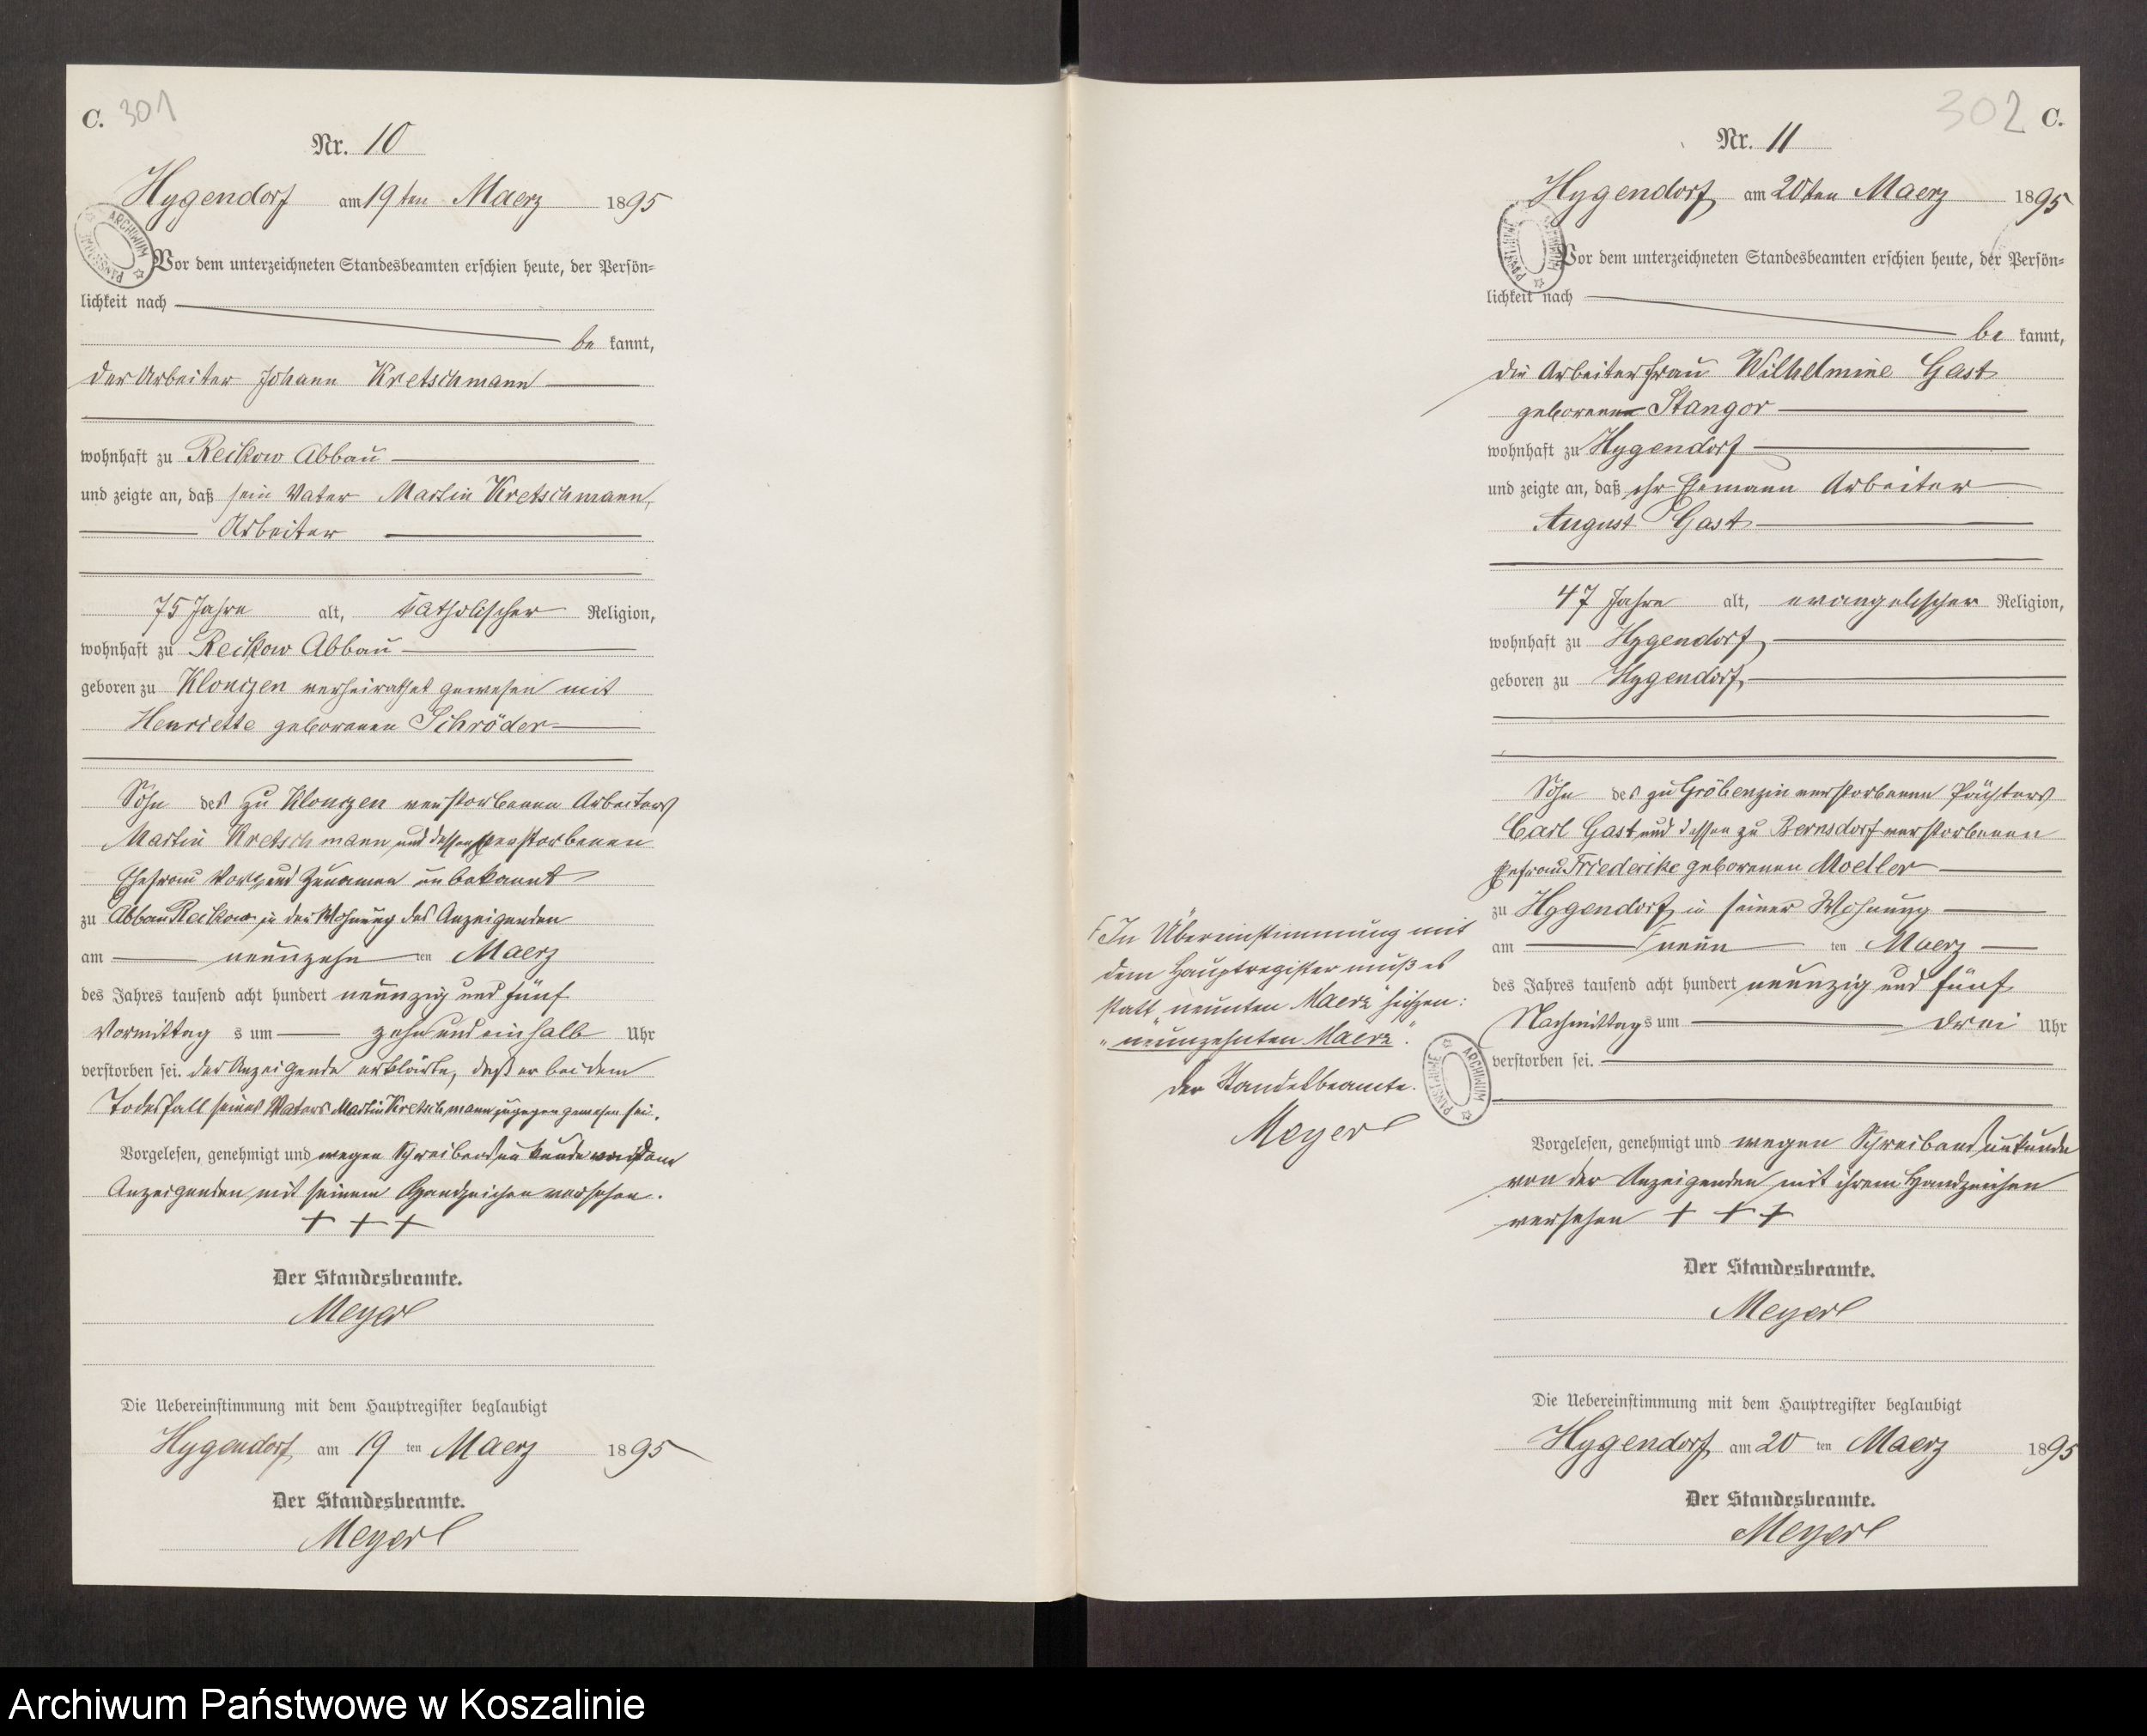 C. 301
Nr. 10
Hygendorf am 19ten Maerz 1895
Vor dem unterzeichneten Standesbeamten erschien heute, der Persön=
lichkeit nach
be kannt,
der Arbeiter Johann Kretschmann
wohnhaft zu Reckow Abbau
und zeigte an, daß sein Vater Martin Kretschmann,
Arbeiter
75 Jahre alt, katholischer Religion,
wohnhaft zu Reckow Abbau
geboren zu Klonczen verheirathet gewesen mit
Henriette geborenen Schröder
Sohn des zu Klonczen verstorbenen Arbeiters
Martin Kretschmann und dessen verstorbenen
Ehefrau Vor und Zunamen unbekannt
zu Abbau Reckow in der Wohnung des Anzeigenden
am neunzehn ten Maerz
des Jahres tausend acht hundert neunzig und fünf
Vormittag s um zehn und einhalb Uhr
verstorben sei. der Anzeigende erklärte, daß er bei dem
Todesfall seines Vaters Martin Kretschmann zugegen gewesen sei.
Vorgelesen, genehmigt und wegen Schreibensunkunde von dem
Anzeigenden mit seinem Handzeichen versehen.
+ + +
Der Standesbeamte.
Meyer
Die Uebereinstimmung mit dem Hauptregister beglaubigt
Hygendorf am 19 ten Maerz 1895
Der Standesbeamte.
Meyer
302 C.
Nr. 11
Hygendorf am 20ten Maerz 1895
Vor dem unterzeichneten Standesbeamten erschien heute, der Persön=
lichkeit nach
be kannt,
die Arbeiterfrau Wilhelmine Gast
geborenen Stangor
wohnhaft zu Hygendorf
und zeigte an, daß ihr Ehemann Arbeiter
August Gast
47 Jahre alt, evangelischer Religion,
wohnhaft zu Hygendorf
geboren zu Hygendorf
Sohn des zu Gröbenzin verstorbenen Pächters
Carl Gast und dessen zu Bernsdorf verstorbenen
Ehefrau Friederike geborenen Moeller
zu Hygendorf in seiner Wohnung
am neun ten Maerz
des Jahres tausend acht hundert neunzig und fünf
Nachmittags um drei Uhr
verstorben sei.
Vorgelesen, genehmigt und wegen Schreibensunkunde
von der Anzeigenden mit ihrem Handzeichen
versehen + + +
Der Standesbeamte.
Meyer
Die Uebereinstimmung mit dem Hauptregister beglaubigt
Hygendorf am 20 ten Maerz 1895
Der Standesbeamte.
Meyer
In Übereinstimmung mit
dem Hauptregister muß es
statt "neunten Maerz" heißen:
"neunzehnten Maerz".
Der Standesbeamte.
Meyer
ARCHIWUM PAŃSTWOWE
Archiwum Państwowe w Koszalinie